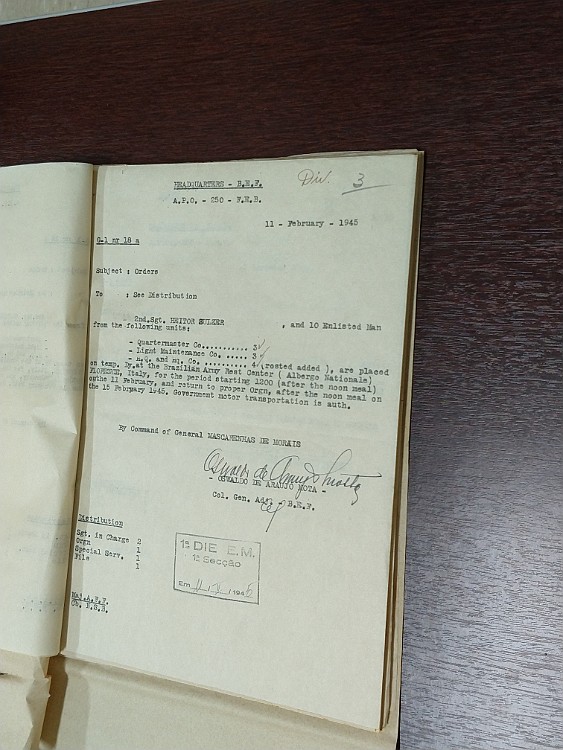 Div. 3
HEADQUARTERS - B.E.F.
A.P.O. - 250 - F.E.B.
11 - February - 1945
G-1 nr 18 a
Subject : Orders
To : See Distribution
2nd.Sgt. HEITOR SULZER , and 10 Enlisted Man
from the following units:
- Quartermaster Co........... 3
- Light Maintenance Co. ..... 3
- H.Q. and sq. Co. .......... 4 (rosted added ), are placed
on temp. Dy.at the Brazilian Army Rest Center ( Albergo Nationale)
FLORENCE, Italy, for the period starting 1200 (after the noon meal)
on the 11 February, and return to proper Orgn, after the noon meal on
the 15 February 1945. Government motor transportation is auth.
By Command of General MASCARENHAS DE MORAIS
Oswaldo de Araujo Motta
- OSWALDO DE ARAUJO MOTA -
Col. Gen. Adj. - B.E.F.
Distribution
Sgt. in Charge 2
Orgn 1
Special Serv. 1
File 1
1ª DIE E.M.
1ª Secção
Em 11/ /1945